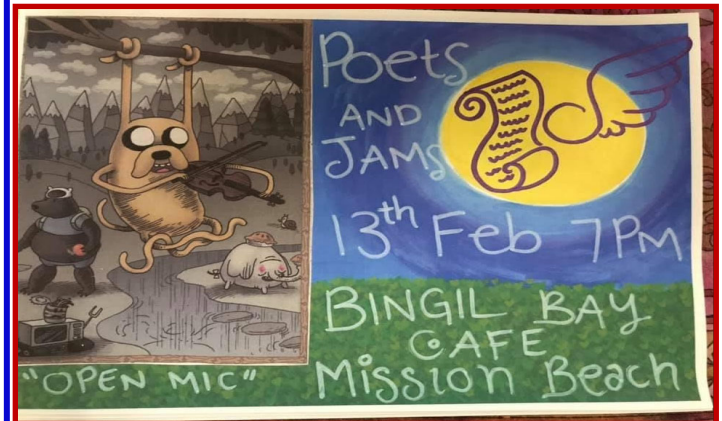 Poets
AND
JAMS
13th Feb 7PM
BINGIL BAY
CAFE
Mission Beach
"OPEN MIC"